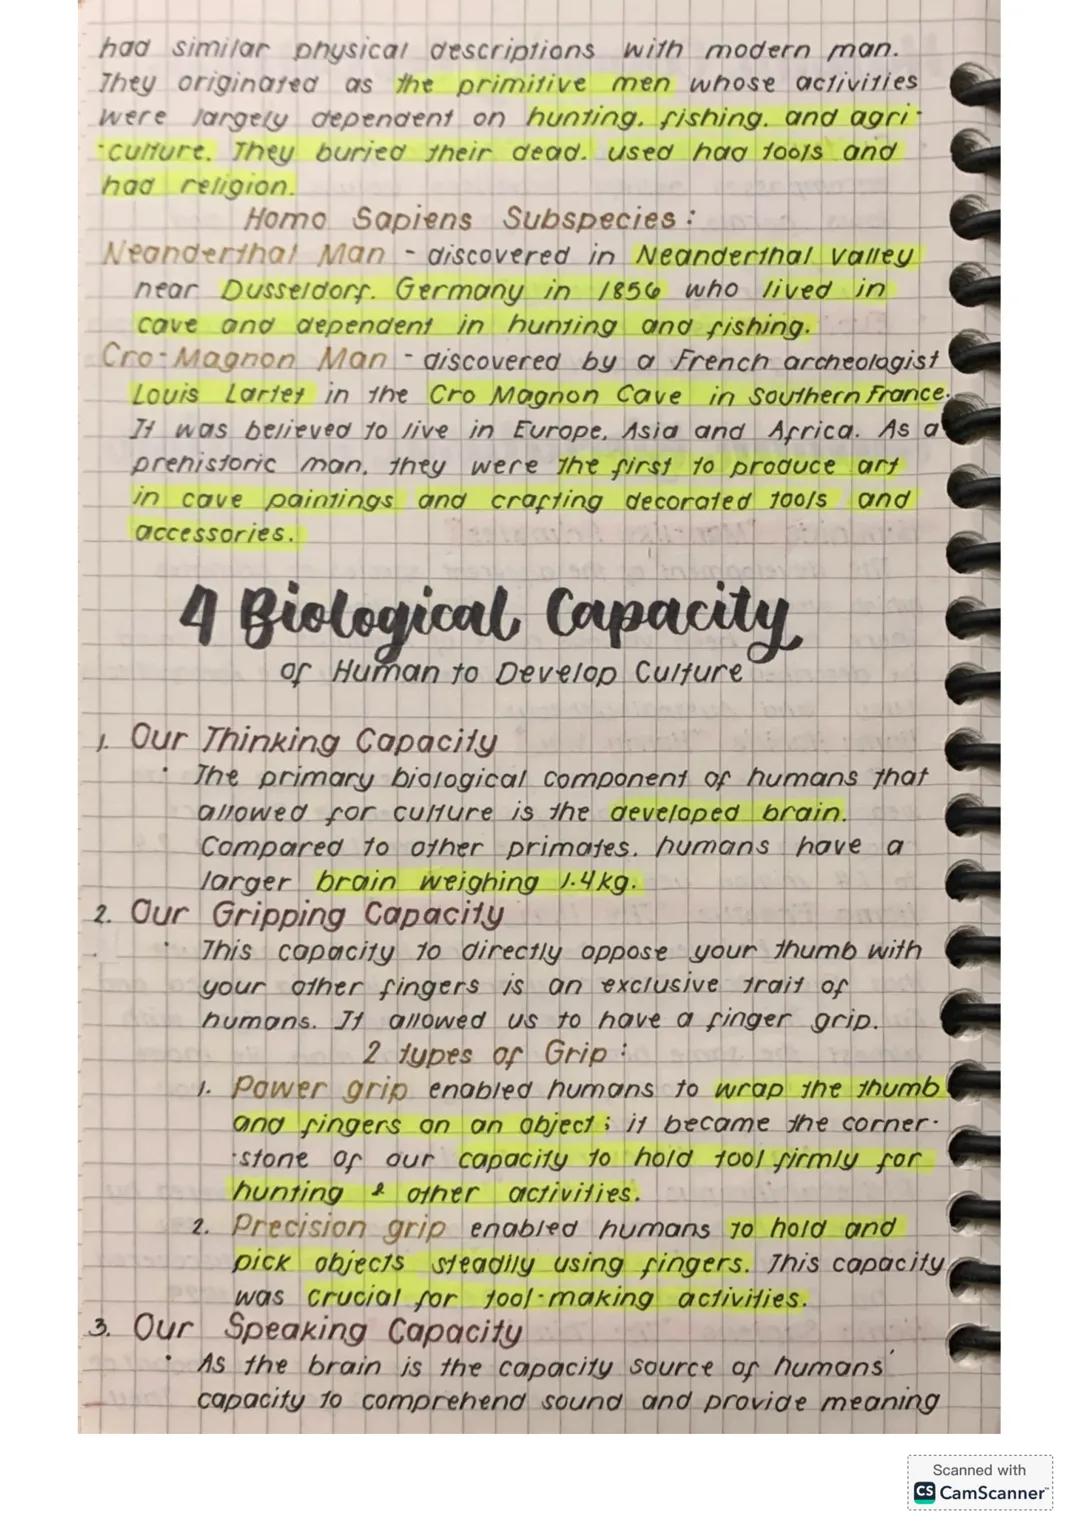 had similar physical descriptions with modern man.
They originated as the primitive men whose activities
were largely dependent on hunting, fishing, and agri-
-culture. They buried their dead, used had tools and
had religion.
Homo Sapiens Subspecies:
Neanderthal Man - discovered in Neanderthal Valley
near Dusseldorf, Germany in 1856 who lived in
cave and dependent in hunting and fishing.
Cro-Magnon Man - discovered by a French archeologist
Louis Lartet in the Cro Magnon Cave in Southern France.
It was believed to live in Europe, Asia and Africa. As a
prehistoric man, they were the first to produce art
in cave paintings and crafting decorated tools and
accessories.
4 Biological Capacity
of Human to Develop Culture
1. Our Thinking Capacity
• The primary biological component of humans that
allowed for culture is the developed brain.
Compared to other primates, humans have a
larger brain weighing 1.4kg.
2. Our Gripping Capacity
• This capacity to directly oppose your thumb with
your other fingers is an exclusive trait of
humans. It allowed us to have a finger grip.
2 types of Grip:
1. Power grip enabled humans to wrap the thumb
and fingers on an object; it became the corner-
-stone of our capacity to hold tool firmly for
hunting & other activities.
2. Precision grip enabled humans to hold and
pick objects steadily using fingers. This capacity
was crucial for tool-making activities.
3. Our Speaking Capacity
• As the brain is the capacity source of humans'
capacity to comprehend sound and provide meaning
Scanned with
CS CamScanner™